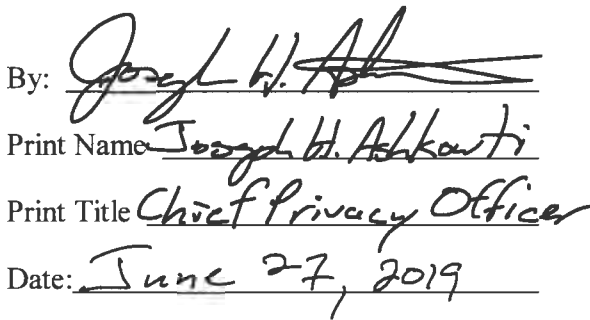 By: Joseph H. Ash
Print Name Joseph H. Ashkouti
Print Title Chief Privacy Officer
Date: June 27, 2019